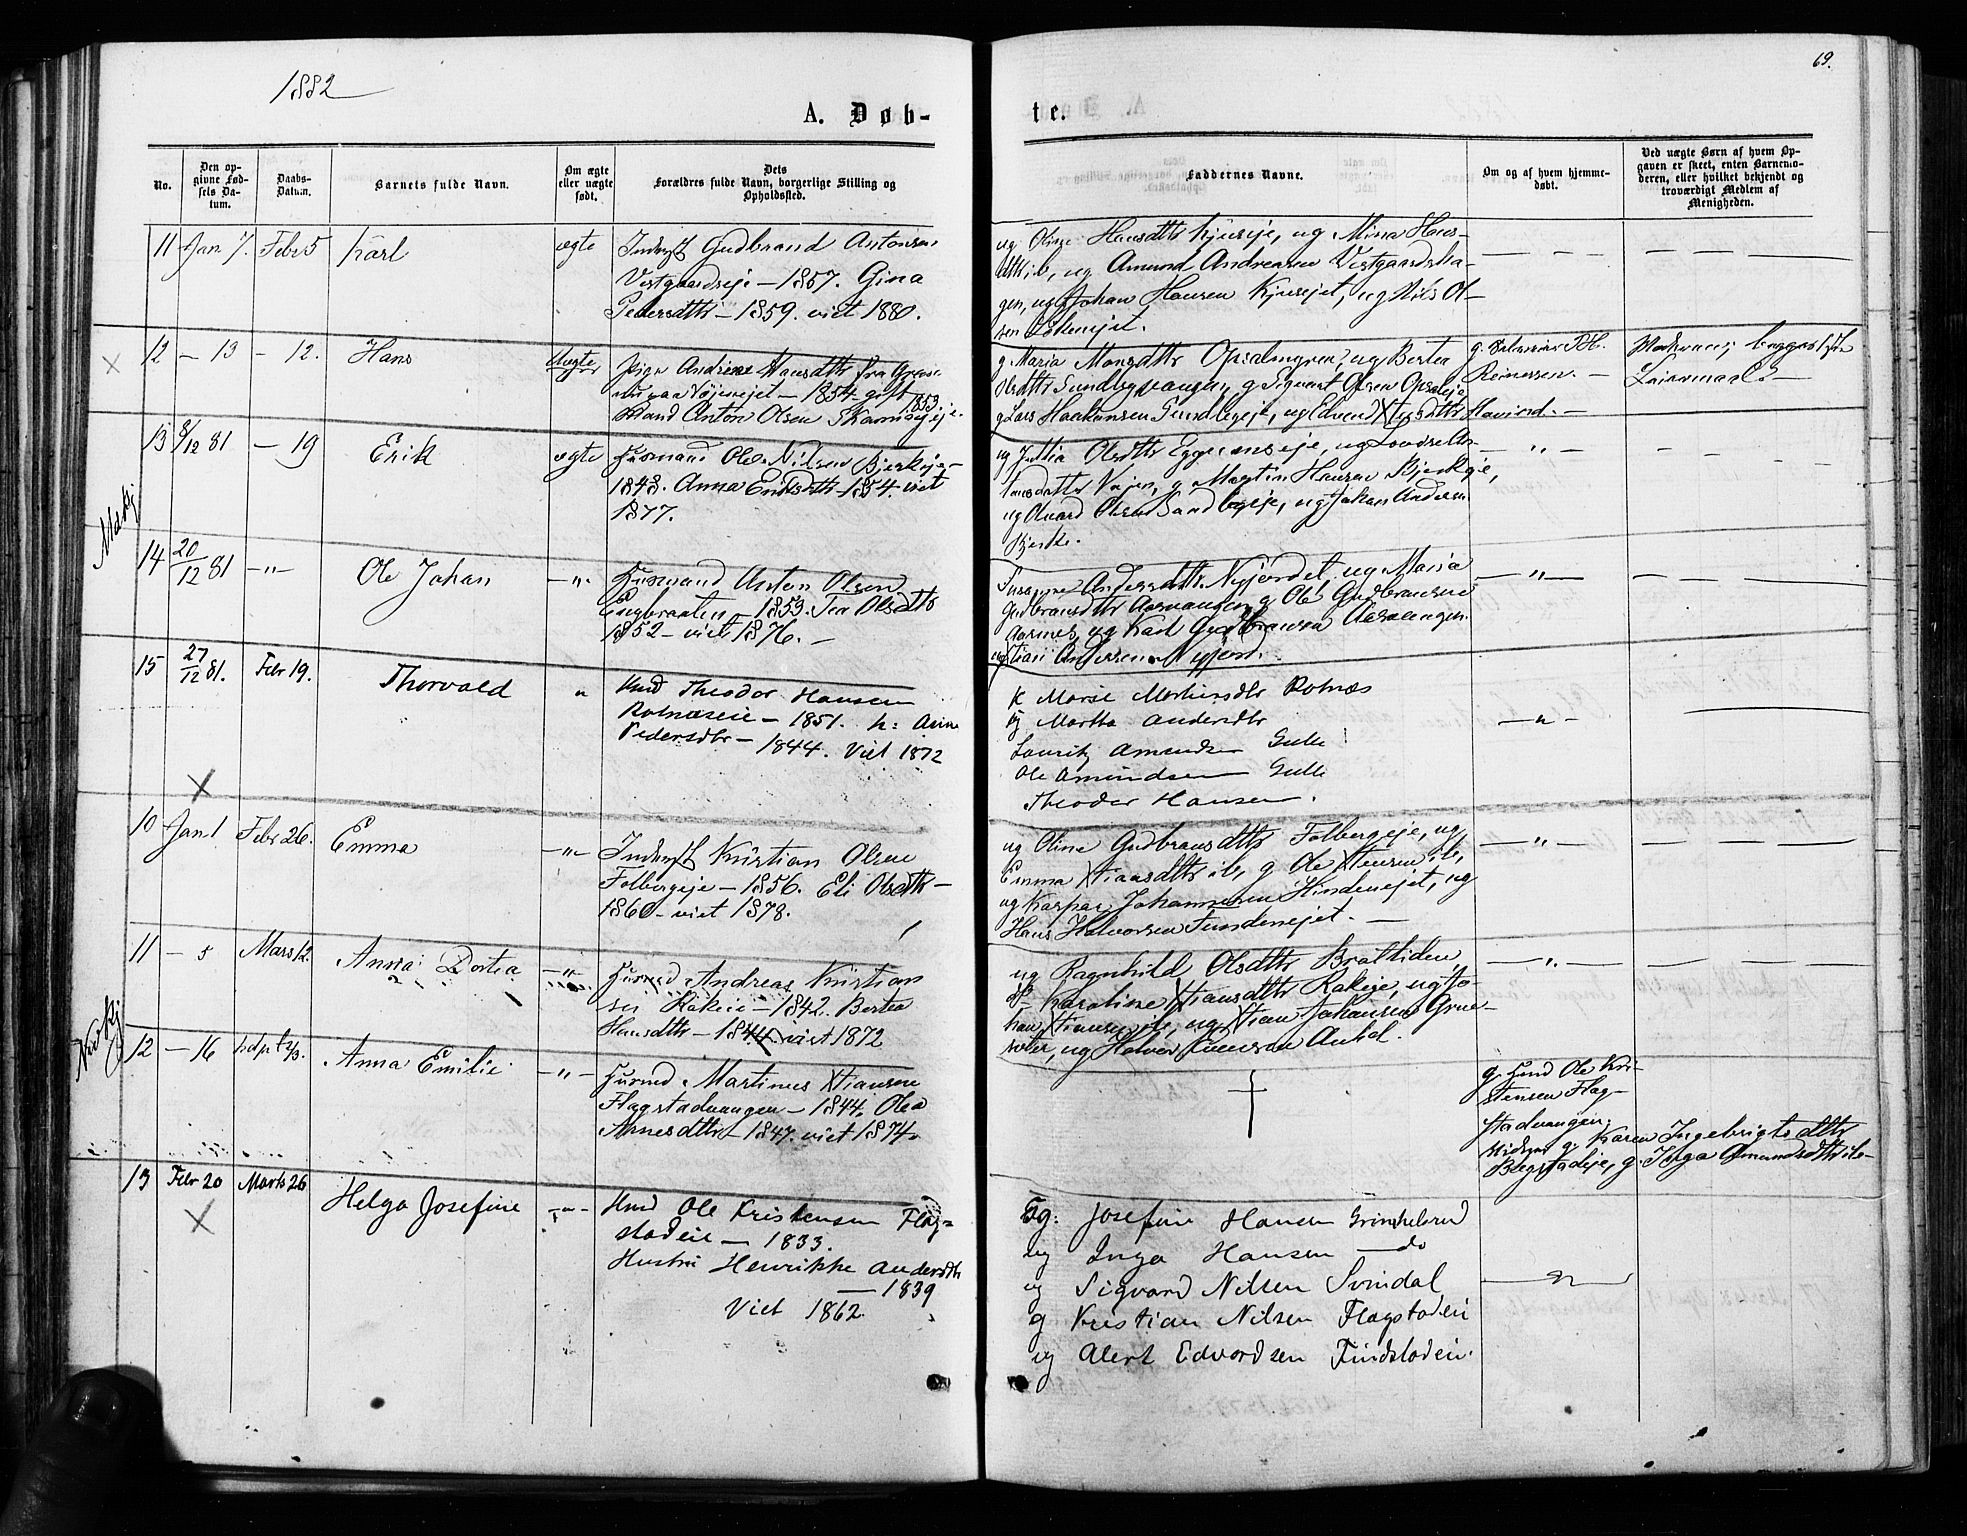 1882
69.
A. Døb-
te.
No.
Den op-
givne Fød-
sels Da-
tum.
Daabs-
Datum.
Barnets fulde Navn.
Om ægte
eller uægte
født.
Dets
Forældres fulde Navn, borgerlige Stilling og
Opholdssted.
Faddernes Navne.
Om og af hvem hjemme-
døbt.
Ved uægte Børn af hvem Op-
gaven er skeet, enten Barnemo-
deren, eller hvilket bekjendt og
troværdigt Medlem af
Menigheden.
11 Jan 7. Febr 5 Karl ægte Inderst Gudbrand Antonsen
Vestgaardseje – 1857. Gina
Pedersdtr – 1859. viet 1880.
ug Oline Hansdtr Kjuseje, ug Mina Hans-
dtr ib, ug Amund Andreasen Vestgaardsha-
gen, ug Johan Hansen Kjusejet, ug Nils Ol-
sen
12 – 13 – 12. Hans Uægte
Pige Andrine Hansdtr fra
– 1854 gift
Anton Olsen 1853
g Maria Monsdtr ug Bertea
Olsdtr Sundbyvangen, g Sigvart Olsen Opsaleje
g Lars Haakonsen Sundbyeje, ug Edvard
g. P.H.
Reinertsen. –
Moderen; begges 1ste
Leiermaal. –
13 8/12 81 – 19 Erik ægte Husmand Ole Nilsen Bjerkeje –
1848. Anna Eriksdtr – 1854. viet
1877.
ug Julia Olsdtr ug Lovise An-
tonsdatter g Martin Hansen Bjerkeje,
ug Olvard Olsen Sandbyeje, ug Johan Andersen
Bjerke.
– " –
Moskj
14 20/12 81 – " – Ole Johan – " – Husmand Anton Olsen
Engbraaten – 1853. Tea Olsdtr
1852 – viet 1876. –
Andersdtr Nyjordet ug Maria
Gudbransdtr Aasvangen g Ole Gudbransen
Aarnes, ug Karl Gudbransen Aasvangen
ug Xtian Andersen Nyjord.
– " –
15 27/12 81. Febr 19. Thorvald " Hmd Theodor Hansen
Rotnæseie – 1851. h: Anne
Pedersdtr – 1844. Viet 1872
K Marie Martinsdtr Rotnæs
Pg Martha Andersdtr
Lauritz Amundsen Gulli
Ole Amundsen Gulli
Theodor Hansen.
– " –
10 Jan. 1 Febr 26. Emma – " – Inderst Kristian Olsen
Folbergeje – 1856. Eli Olsdtr –
1860 – viet 1878.
ug Oline Gudbransdtr Folbergeje, ug
Emma Xtiansdtr ib, g Ole Xtensen ib,
ug Kaspar Johannesen Hindenejet, ug
Hans Halvorsen Tundenejet. –
– " –
11 – 5 Mars 12. Anna Dortea – " – Husmd Andreas Kristian
sen Rakeie – 1842. Bertea
Hansdtr – 1844. viet 1872
ug Ragnhild Olsdtr Bratliden,
Karoline Xtiansdtr Rakeje, ug Jo-
han Xtiansen ib, ug Xtian Johansen Grue-
sæter, ug Halvor
– " –
12 – 16 hdpt 2/3. Anna Emilie – " – Husmd Martinus Xtiansen
Flagstadvangen – 1844. Olea
Arnesdtr – 1847. viet 1874.
†
g. Husmd Ole Kri-
stensen Flag-
stadvangen;
Vidner g. Karen Ingebrigtsdtr
Bergstadeje, g. Inga Amundsdtr ib –
13 Febr 20 Marts 26 Helga Josefine – " – Hmd Ole Kristensen Flag-
stadeie – 1833.
Hustru Henrikke Andersdtr
– 1839
Viet 1862.
Gg: Josefine Hansen Grinkelsrud
ug Inga Hansen – do
ug Sigvard Nilsen Svindal
g Kristian Nilsen Flagstadeie
ug Alert Edvardsen Findstadeie.
– " –